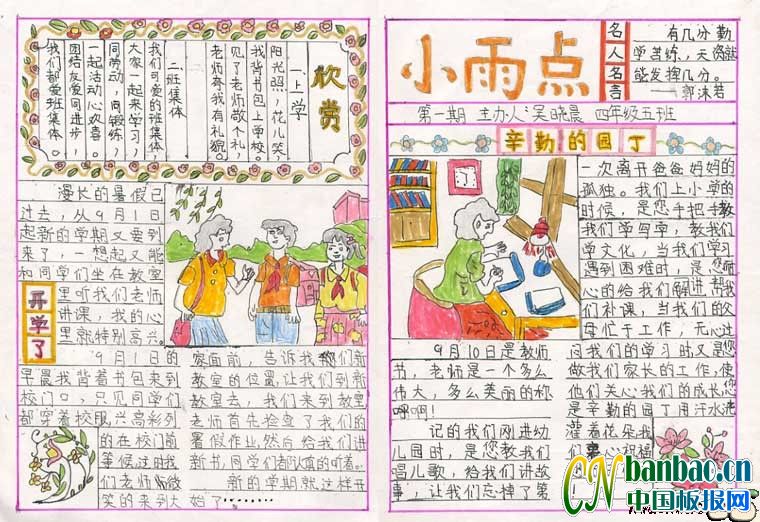 欣赏
一、上学
阳光照，花儿笑，
我背书包上学校。
见了老师敬个礼，
老师夸我有礼貌。
二、班集体
我们可爱的班集体，
大家一起来学习，
同劳动，同锻练，
一起活动心欢喜。
团结友爱同进步，
我们都爱班集体。
漫长的暑假已
过去，从9月1日
起新的学期又要到
来了，一想起又能
和同学们坐在教室
里听我们老师
讲课，我的心
里就特别高兴。
开学了
9月1日的
早晨我背着书包来到
校门口，只见同学们
都穿着校服，兴高彩列
的在校门前
等候，这时我
们老师微
笑的来到大
家面前，告诉我们新
教室的位置，让我们到新
教室去，我们来到教室
老师首先检查了我们的
暑假作业，然后给我们讲
新书，同学们都认真的听着。
新的学期就这样开
始了………
小雨点
名人名言
有几分勤
学苦练，天资就
能发挥几分。
——郭沫若
第一期 主办人：吴晓晨 四年级五班
辛勤的园丁
9月10日是教师
节，老师是一个多么
伟大，多么美丽的称
呼啊！
记的我们刚进幼
儿园时，是您教我们
唱儿歌，给我们讲故
事，让我们忘掉了第
一次离开爸爸妈妈的
孤独。我们上小学的
时候，是您手把手教
我们学写字，教我们
学文化，当我们学习
遇到困难时，是您耐
心的给我们解进帮我
们补课，当我们的父
母忙于工作，无心过
问我们的学习时又是您
做我们家长的工作，使
他们关心我们的成长您
是辛勤的园丁用汗水浇
灌着花朵我
们衷心祝福
CN banbao.cn
中国板报网